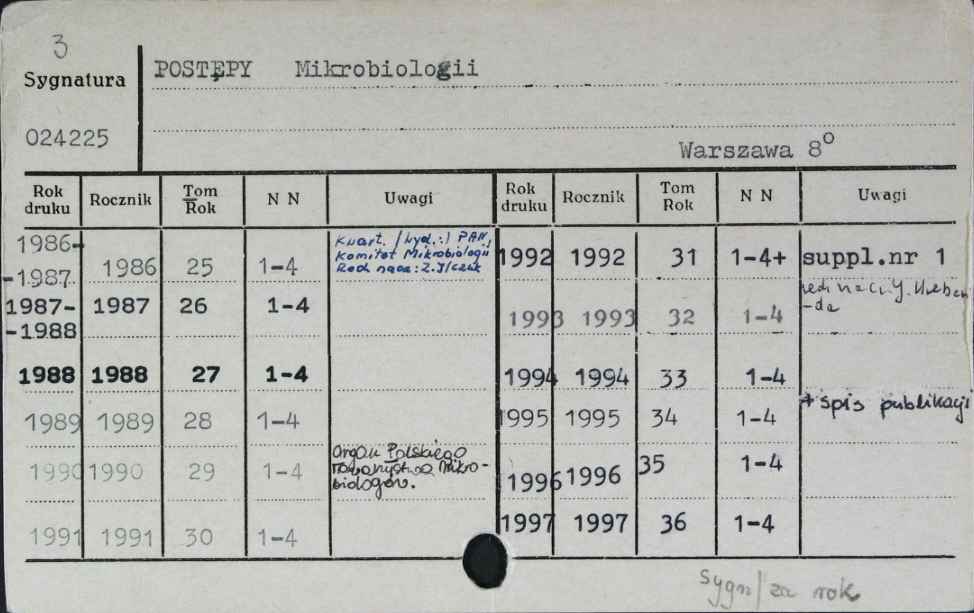 3
Sygnatura
POSTĘPY Mikrobiologii
024225
Warszawa 8°
Rok druku Rocznik Tom Rok N N Uwagi Rok druku Rocznik Tom Rok N N Uwagi
1986-
-1987 1986 25 1-4 Kwart. /Wyd.:/ PAN,
Komitet Mikrobiologii
Red. nacz.: Z.
1987-
-1988 1987 26 1-4
1988 1988 27 1-4
1989 1989 28 1-4
1990 1990 29 1-4 Organ Polskiego
Towarzystwa Mikro-
biologów.
1991 1991 30 1-4
1992 1992 31 1-4+ suppl.nr 1
1993 1993 32 1-4
-da
1994 1994 33 1-4
1995 1995 34 1-4 + spis publikacji
1996 1996 35 1-4
1997 1997 36 1-4
Sygn/ za rok